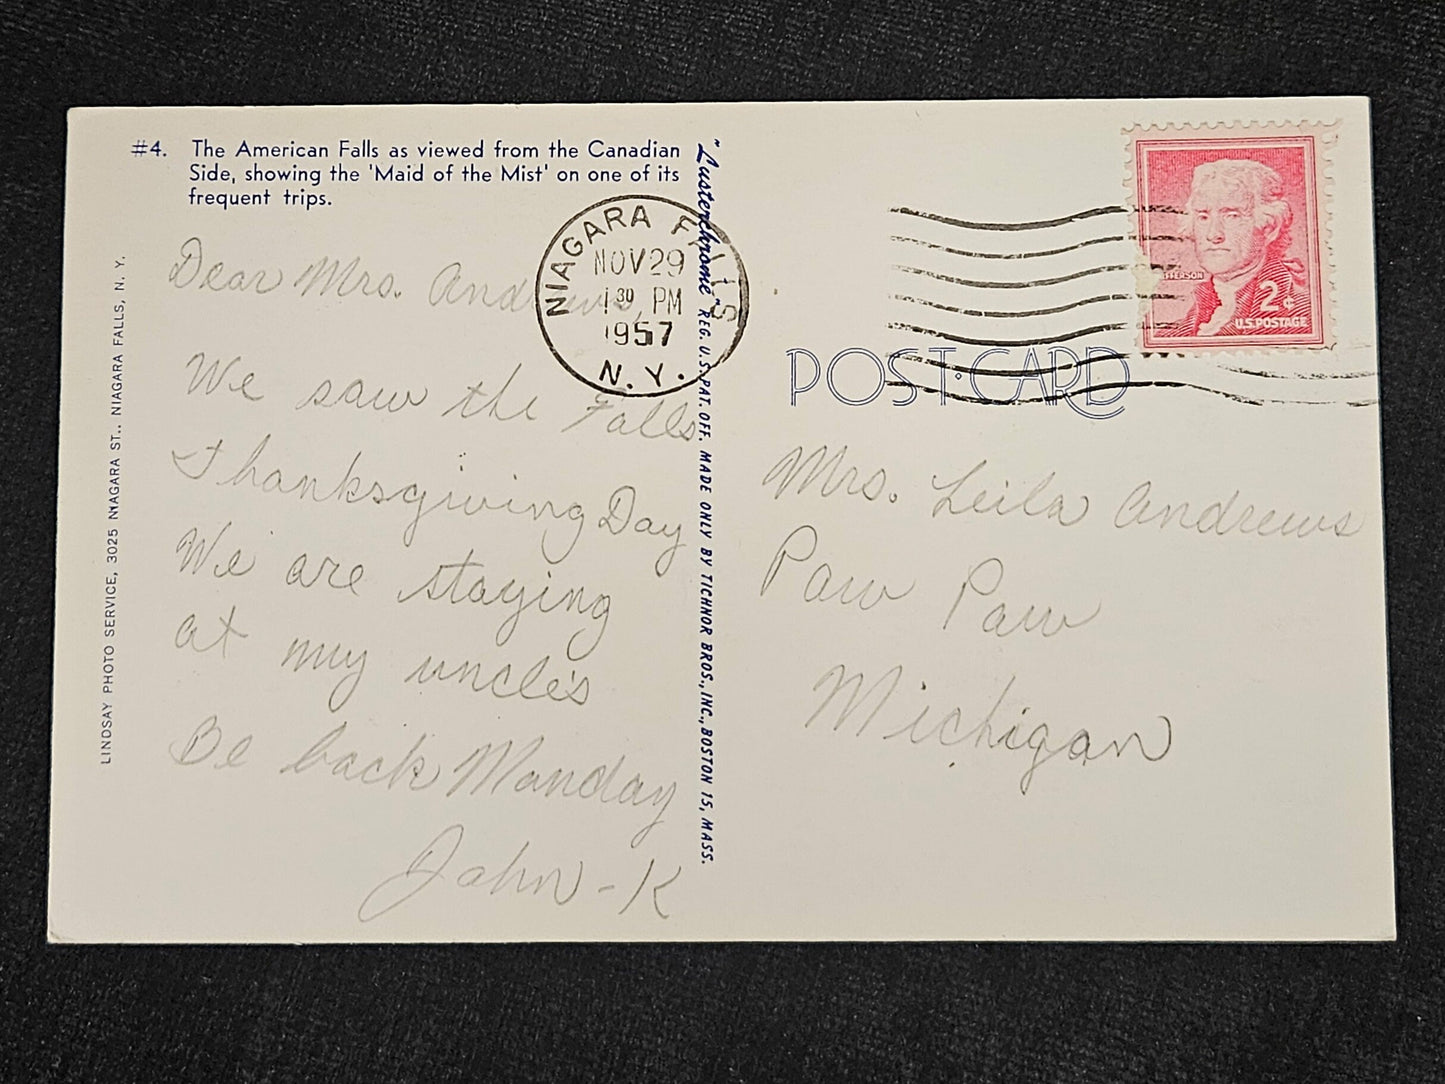 #4. The American Falls as viewed from the Canadian
Side, showing the 'Maid of the Mist' on one of its
frequent trips.
Dear Mrs. Andrews,
We saw the Falls
Thanksgiving Day
We are staying
at my uncle's
Be back Monday
John - K
LINDSAY PHOTO SERVICE, 3025 NIAGARA ST., NIAGARA FALLS, N. Y.
"Lusterchrome" REG. U.S. PAT. OFF. MADE ONLY BY TICHNOR BROS., INC., BOSTON 15, MASS.
NIAGARA FALLS
NOV 29
1 30 PM
1957
N. Y.
JEFFERSON
2¢
U.S. POSTAGE
POST CARD
Mrs. Leila Andrews
Paw Paw
Michigan